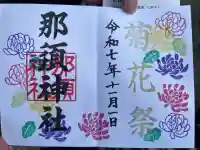 菊花祭
令和七年十一月一日
那須神社